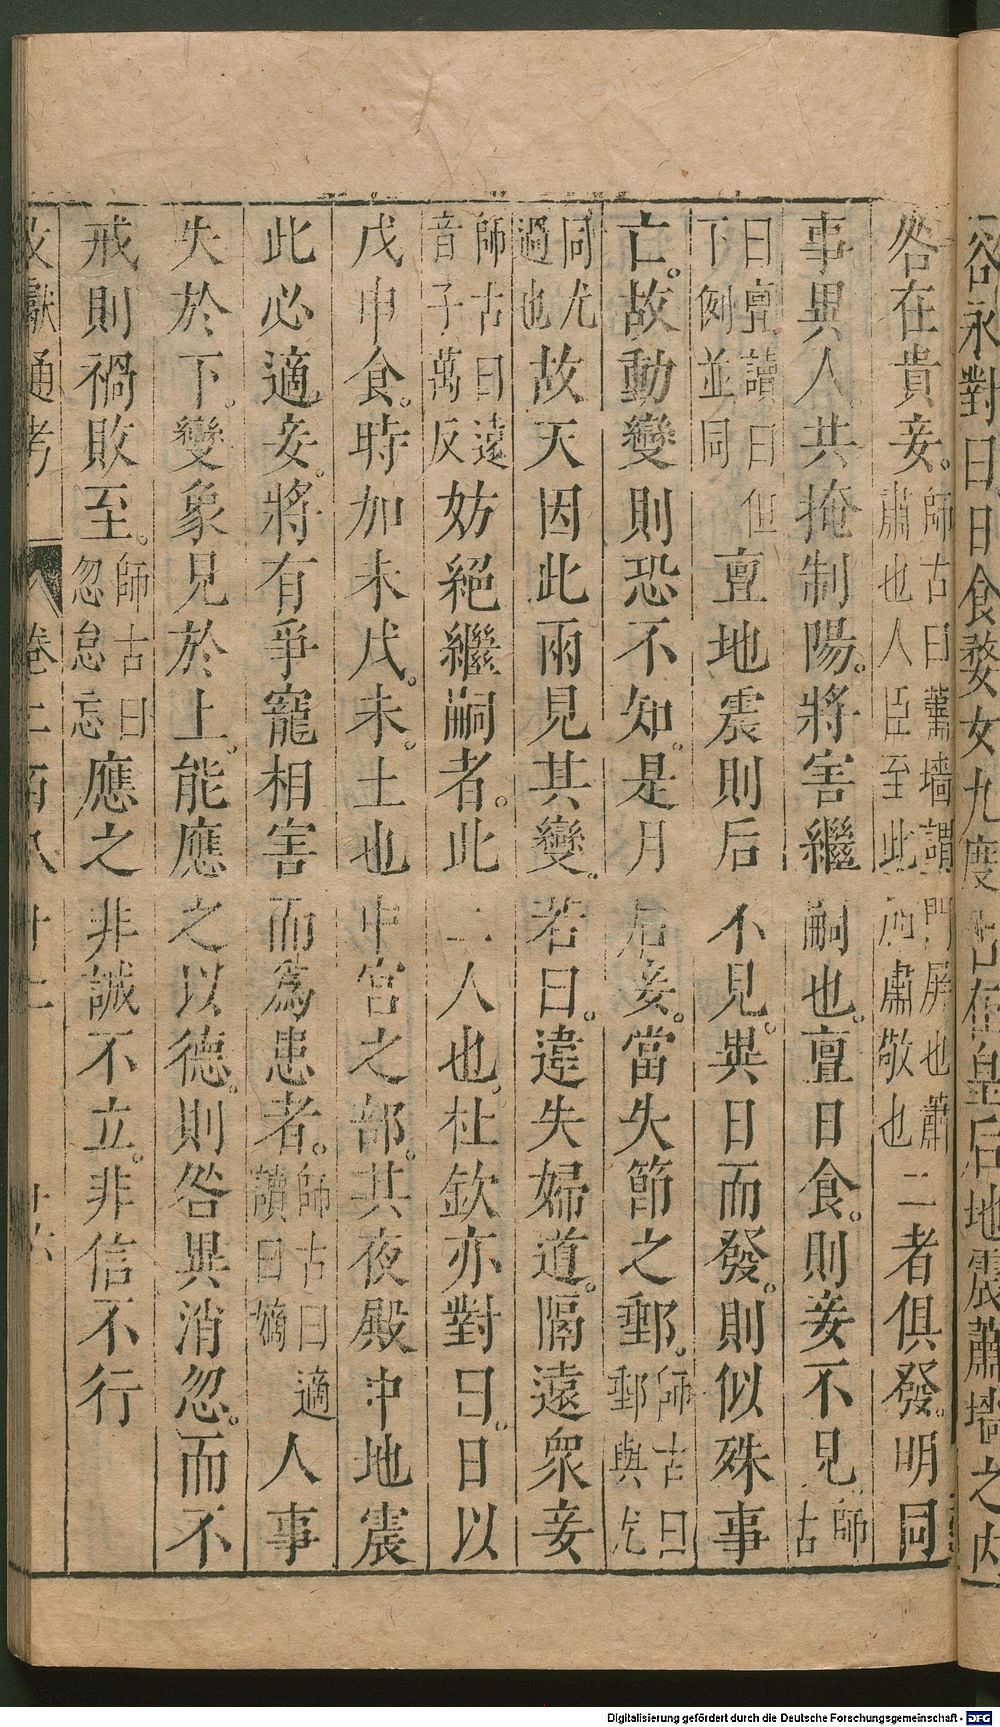 谷永對曰日食婺女九度占在皇后地震蕭墻之內
咎在貴妾。師古曰蕭墻謂門屏也蕭肅也人臣至此而肅敬也二者俱發。明同
事異人。共掩制陽。將害繼嗣也。亶日食。則妾不見師古
曰亶讀曰但下例並同亶地震則后不見。異日而發。則似殊事
亡。故動變則恐不知。是月后妾。當失節之郵。師古曰郵與尤
同尤過也故天因此兩見其變。若曰。違失婦道。隔遠衆妾
師古曰遠音子萬反妨絕繼嗣者。此二人也。杜欽亦對曰。日以
戊申食。時加未戊。未。土也中宮之部。其夜殿中地震
此必適妾。將有爭寵相害而爲患者。師古曰適讀曰嫡人事
失於下。變象見於上。能應之以德。則咎異消忽。而不
戒則禍敗至。師古曰忽怠忘應之非誠不立。非信不行
文獻通考 卷二百八
Digitalisierung gefördert durch die Deutsche Forschungsgemeinschaft - DFG